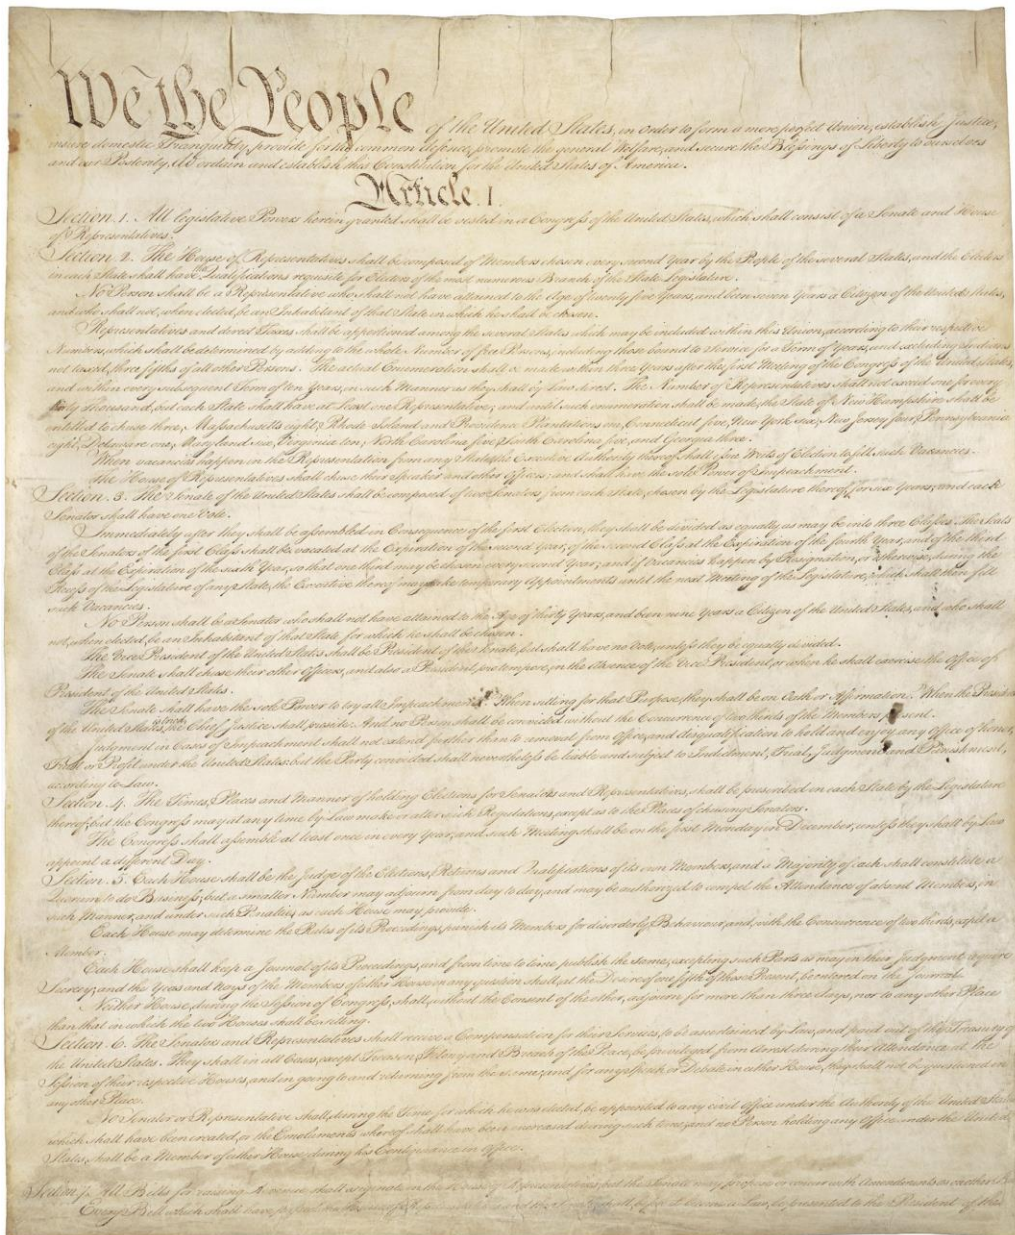 We the People of the United States, in Order to form a more perfect Union, establish Justice,
insure domestic Tranquility, provide for the common defence, promote the general Welfare, and secure the Blessings of Liberty to ourselves
and our Posterity, do ordain and establish this Constitution for the United States of America.
Article. I.
Section. 1. All legislative Powers herein granted shall be vested in a Congress of the United States, which shall consist of a Senate and House
of Representatives.
Section. 2. The House of Representatives shall be composed of Members chosen every second Year by the People of the several States, and the Electors
in each State shall have the Qualifications requisite for Electors of the most numerous Branch of the State Legislature.
No Person shall be a Representative who shall not have attained to the Age of twenty five Years, and been seven Years a Citizen of the United States,
and who shall not, when elected, be an Inhabitant of that State in which he shall be chosen.
Representatives and direct Taxes shall be apportioned among the several States which may be included within this Union, according to their respective
Numbers, which shall be determined by adding to the whole Number of free Persons, including those bound to Service for a Term of Years, and excluding Indians
not taxed, three fifths of all other Persons. The actual Enumeration shall be made within three Years after the first Meeting of the Congress of the United States,
and within every subsequent Term of ten Years, in such Manner as they shall by Law direct. The Number of Representatives shall not exceed one for every
thirty Thousand, but each State shall have at Least one Representative; and until such enumeration shall be made, the State of New Hampshire shall be
entitled to chuse three, Massachusetts eight, Rhode-Island and Providence Plantations one, Connecticut five, New-York six, New Jersey four, Pennsylvania
eight, Delaware one, Maryland six, Virginia ten, North Carolina five, South Carolina five, and Georgia three.
When vacancies happen in the Representation from any State, the Executive Authority thereof shall issue Writs of Election to fill such Vacancies.
The House of Representatives shall chuse their Speaker and other Officers; and shall have the sole Power of Impeachment.
Section. 3. The Senate of the United States shall be composed of two Senators from each State, chosen by the Legislature thereof, for six Years; and each
Senator shall have one Vote.
Immediately after they shall be assembled in Consequence of the first Election, they shall be divided as equally as may be into three Classes. The Seats
of the Senators of the first Class shall be vacated at the Expiration of the second Year, of the second Class at the Expiration of the fourth Year, and of the third
Class at the Expiration of the sixth Year, so that one third may be chosen every second Year; and if Vacancies happen by Resignation, or otherwise, during the
Recess of the Legislature of any State, the Executive thereof may make temporary Appointments until the next Meeting of the Legislature, which shall then fill
such Vacancies.
No Person shall be a Senator who shall not have attained to the Age of thirty Years, and been nine Years a Citizen of the United States, and who shall
not, when elected, be an Inhabitant of that State for which he shall be chosen.
The Vice President of the United States shall be President of the Senate, but shall have no Vote, unless they be equally divided.
The Senate shall chuse their other Officers, and also a President pro tempore, in the Absence of the Vice President, or when he shall exercise the Office of
President of the United States.
The Senate shall have the sole Power to try all Impeachments. When sitting for that Purpose, they shall be on Oath or Affirmation. When the President
of the United States is tried, the Chief Justice shall preside: And no Person shall be convicted without the Concurrence of two thirds of the Members present.
Judgment in Cases of Impeachment shall not extend further than to removal from Office, and disqualification to hold and enjoy any Office of honor,
Trust or Profit under the United States: but the Party convicted shall nevertheless be liable and subject to Indictment, Trial, Judgment and Punishment,
according to Law.
Section. 4. The Times, Places and Manner of holding Elections for Senators and Representatives, shall be prescribed in each State by the Legislature
thereof; but the Congress may at any time by Law make or alter such Regulations, except as to the Places of chusing Senators.
The Congress shall assemble at least once in every Year, and such Meeting shall be on the first Monday in December, unless they shall by Law
appoint a different Day.
Section. 5. Each House shall be the Judge of the Elections, Returns and Qualifications of its own Members, and a Majority of each shall constitute a
Quorum to do Business; but a smaller Number may adjourn from day to day, and may be authorized to compel the Attendance of absent Members, in
such Manner, and under such Penalties as each House may provide.
Each House may determine the Rules of its Proceedings, punish its Members for disorderly Behaviour, and, with the Concurrence of two thirds, expel a
Member.
Each House shall keep a Journal of its Proceedings, and from time to time publish the same, excepting such Parts as may in their Judgment require
Secrecy; and the Yeas and Nays of the Members of either House on any question shall, at the Desire of one fifth of those Present, be entered on the Journal.
Neither House, during the Session of Congress, shall, without the Consent of the other, adjourn for more than three days, nor to any other Place
than that in which the two Houses shall be sitting.
Section. 6. The Senators and Representatives shall receive a Compensation for their Services, to be ascertained by Law, and paid out of the Treasury of
the United States. They shall in all Cases, except Treason, Felony and Breach of the Peace, be privileged from Arrest during their Attendance at the
Session of their respective Houses, and in going to and returning from the same; and for any Speech or Debate in either House, they shall not be questioned in
any other Place.
No Senator or Representative shall, during the Time for which he was elected, be appointed to any civil Office under the Authority of the United States,
which shall have been created, or the Emoluments whereof shall have been increased during such time; and no Person holding any Office under the United
States, shall be a Member of either House during his Continuance in Office.
Section. 7. All Bills for raising Revenue shall originate in the House of Representatives; but the Senate may propose or concur with Amendments as on other Bills.
Every Bill which shall have passed the House of Representatives and the Senate, shall, before it become a Law, be presented to the President of the